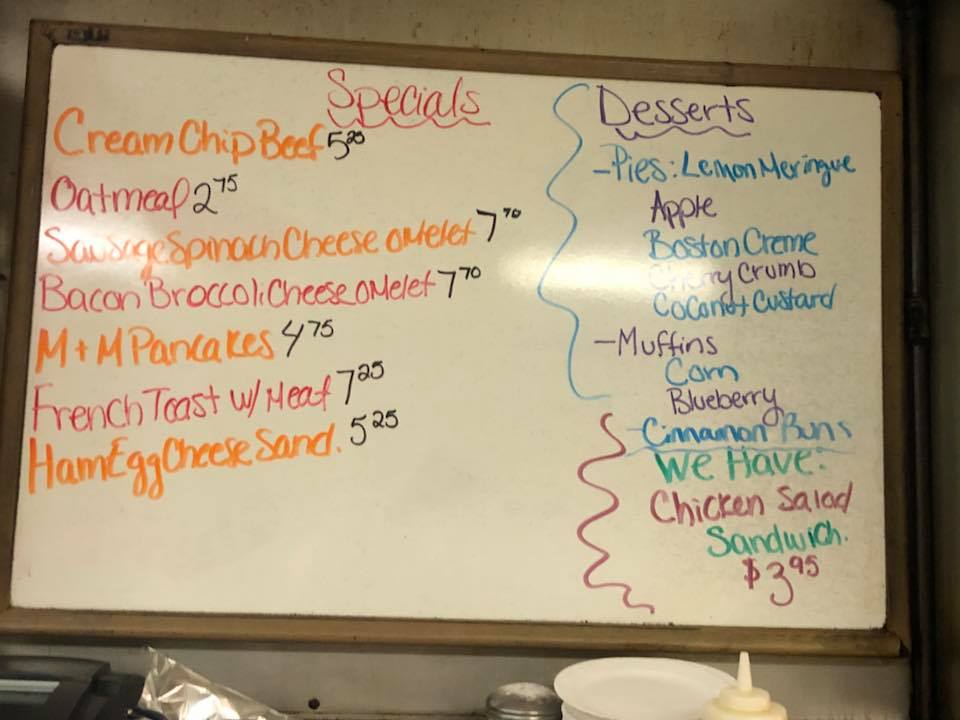 Specials
Cream Chip Beef 5 25
Oatmeal 2 75
Sausage Spinach Cheese omelet 7 70
Bacon Broccoli Cheese omelet 7 70
M+M Pancakes 4 75
French Toast w/ Meat 7 25
Ham Egg Cheese Sand. 5 25
Desserts
-Pies: Lemon Meringue
Apple
Boston Creme
Cherry Crumb
Coconut Custard
-Muffins
Corn
Blueberry
-Cinnamon Buns
We Have:
Chicken Salad
Sandwich.
$3 95